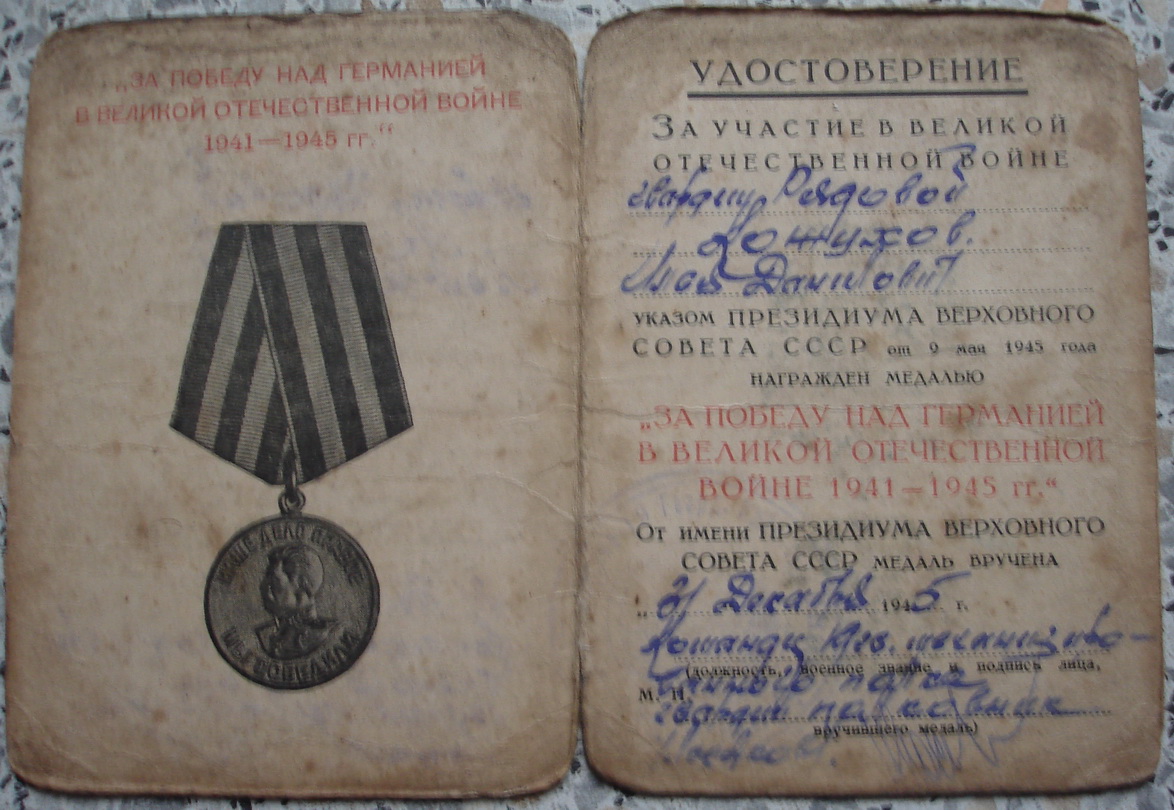 „ЗА ПОБЕДУ НАД ГЕРМАНИЕЙ
В ВЕЛИКОЙ ОТЕЧЕСТВЕННОЙ ВОЙНЕ
1941—1945 гг.“
НАШЕ ДЕЛО ПРАВОЕ
МЫ ПОБЕДИЛИ
УДОСТОВЕРЕНИЕ
ЗА УЧАСТИЕ В ВЕЛИКОЙ
ОТЕЧЕСТВЕННОЙ ВОЙНЕ
гвардии Рядовой
Кожухов.
Данилович
УКАЗОМ ПРЕЗИДИУМА ВЕРХОВНОГО
СОВЕТА СССР от 9 мая 1945 года
НАГРАЖДЕН МЕДАЛЬЮ
„ЗА ПОБЕДУ НАД ГЕРМАНИЕЙ
В ВЕЛИКОЙ ОТЕЧЕСТВЕННОЙ
ВОЙНЕ 1941—1945 гг.“
ОТ ИМЕНИ ПРЕЗИДИУМА ВЕРХОВНОГО
СОВЕТА СССР МЕДАЛЬ ВРУЧЕНА
„31 Декабря 1945 г.
Командир
(должность, военное звание и подпись лица,
М. П. полка
гвардии полковник
вручившего медаль)